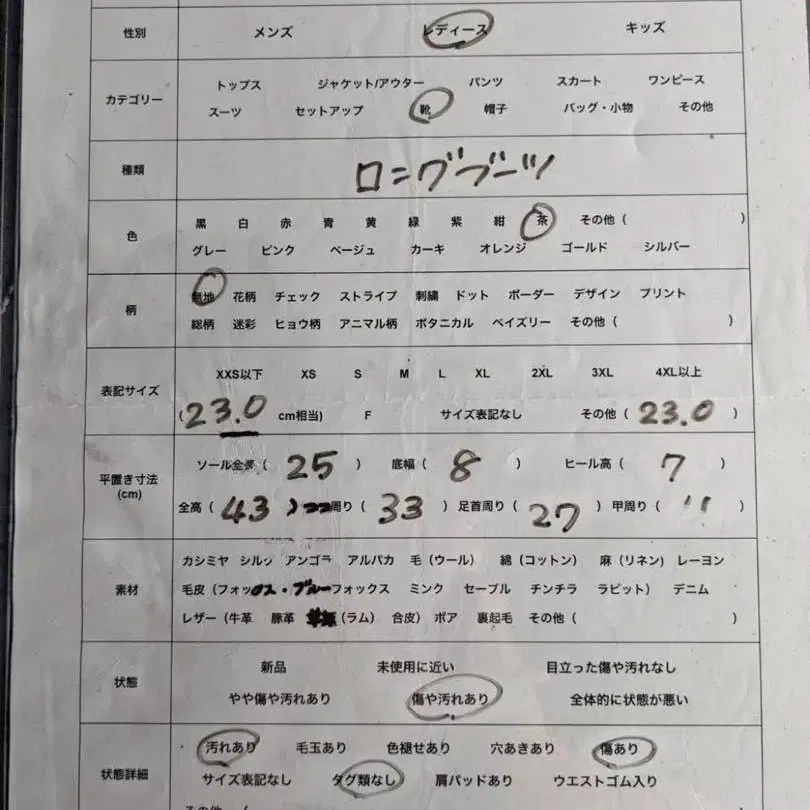 性別 メンズ レディース キッズ
カテゴリー
トップス ジャケット/アウター パンツ スカート ワンピース
スーツ セットアップ 靴 帽子 バッグ・小物 その他
種類 ロングブーツ
色
黒 白 赤 青 黄 緑 紫 紺 茶 その他 ( )
グレー ピンク ベージュ カーキ オレンジ ゴールド シルバー
柄
無地 花柄 チェック ストライプ 刺繍 ドット ボーダー デザイン プリント
総柄 迷彩 ヒョウ柄 アニマル柄 ボタニカル ペイズリー その他 ( )
表記サイズ
XXS以下 XS S M L XL 2XL 3XL 4XL以上
(23.0 cm相当) F サイズ表記なし その他 ( 23.0 )
平置き寸法
(cm)
ソール全長 ( 25 ) 底幅 ( 8 ) ヒール高 ( 7 )
全高 ( 43 ) 周り ( 33 ) 足首周り ( 27 ) 甲周り ( )
素材
カシミヤ シルク アンゴラ アルパカ 毛 (ウール) 綿 (コットン) 麻 (リネン) レーヨン
毛皮 (フォックス・ブルーフォックス ミンク セーブル チンチラ ラビット) デニム
レザー (牛革 豚革 (ラム) 合皮) ボア 裏起毛 その他 ( )
状態
新品 未使用に近い 目立った傷や汚れなし
やや傷や汚れあり 傷や汚れあり 全体的に状態が悪い
状態詳細
汚れあり 毛玉あり 色褪せあり 穴あきあり 傷あり
サイズ表記なし タグ類なし 肩パッドあり ウエストゴム入り